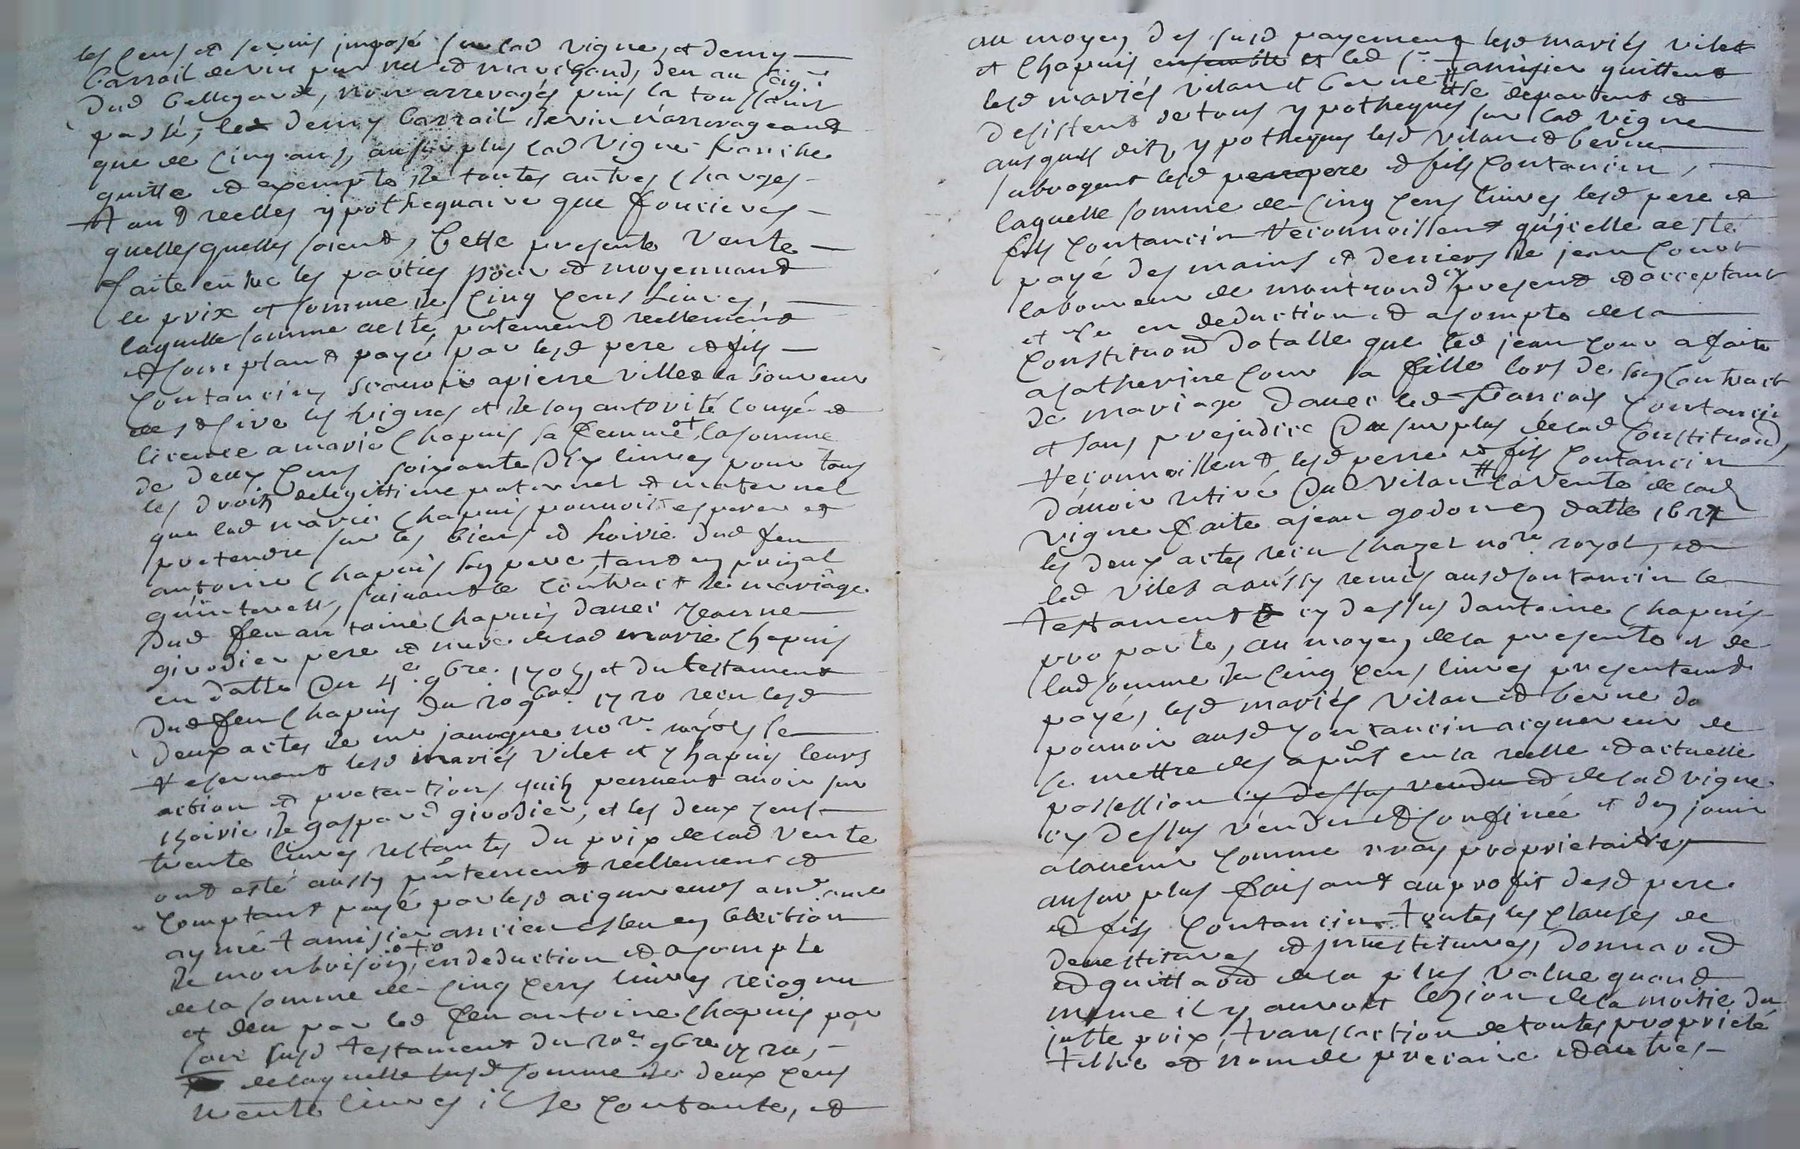 les cens et servis imposé sur lad vigne, et demy
barrail de vin pur nel et marchand, deu au sigr
dud bellegarde, non arreragés puis la toussaint
passé, led demy barrail de vin n'arrerageant
que de cinq ans, au surplus lad vigne franche
quitte et exempte de toutes autres charges
tant reelles ypothequaire que foncieres
quelles quelles soient, Cette presente vente
faite entre les parties pour et moyennant
le prix et somme de Cinq cens livres,
laquelle somme a esté pntement reellement
et comptant payé par lesd pere et fils
contancin scavoir a pierre villet laboureur
les vignes et de son autorité congé et
licence a marie chapuis sa femme la somme
de deux cens soixante dix livres pour tous
les droits de legittime paternel et maternel
que lad marie chapuis pouvoit esperer et
pretendre sur les biens et hoirie dud feu
antoine chapuis son pere, tant en prinpal
quinterets, suivant le contract de mariage
dud feu antoine chapuis avec jeanne
girodier pere et mere de lad marie chapuis
en datte du 4e 9bre 1705, et du testament
dud feu chapuis du 20 9bre 1720 receu lesd
deux actes de me janogne nore royol se
reservent lesd mariés vilet et chapuis leurs
action et pretentions quils peuvent avoir sur
lhoirie de gaspard girodier, et les deux cens
trente livres restantes du prix de lad vente
ont esté aussy pntement reellement et
comptant payé par lesd acquereurs au sr
aymé tamisier ancien esleu en lelection
de montbrison, en deduction et acompte
de la somme de cinq cens livres recognu
et deu par led feu antoine chapuis par
son susd testament du 20e 9bre 1720,
de laquelle susd somme de deux cens
trente livres il se contante, et
au moyen des susd payement lesd mariés vilet
et chapuis ensemble et led sr tamisier quittent
lesd mariés vilan et berne se departent et
desistent de tous ypotheques sur lad vigne
ausquels dits ypotheques lesd vilan et berne
subrogent lesd pere et fils contancin,
laquelle somme de cinq cens livres lesd pere et
fils contancin reconnoissent quicelle a esté
payé des mains et deniers de jean cour
laboureur de montrond cy present et acceptant
et ce en deduction et acompte de la
constituon dotalle que led jean cour a faite
a catherine cour sa fille lors de son contract
de mariage avec led francois contancin
et sans prejudice du surplus de lad constituon,
reconnoissent lesd pere et fils contancin
davoir retiré dud vilan la vente de lad
vigne faite a jean godon en datte 162
les deux actes receu chazel nore royol, et
led vilet a aussy remis ausd contancin le
testament cy dessus dantoine chapuis
pro parte, au moyen de la presente et de
lad somme de cinq cens livres presentement
payé, lesd mariés vilan et berne do
pouvoir ausd contancin acquereur de
se mettre des apnt en la reelle et actuelle
possession cy dessus vendu et de lad vigne
cy dessus vendu et confinée et den jouir
alavenir comme vray proprietaires
au surplus faisant au profit desd pere
et fils contancin toutes les clauses de
devestitures et investitures, donnaon
et quittaon de la plus value quand
mesme il y auroit lezion de la moitie du
juste prix, translaction de toutes proprieté
tiltre et nom de precaire et autres